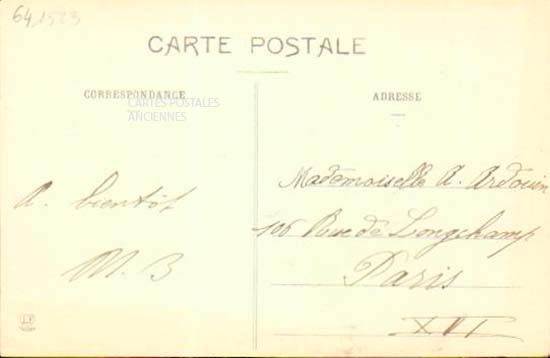 64,1523
CARTE POSTALE
CORRESPONDANCE
CARTES POSTALES
ANCIENNES
ADRESSE
A. bientôt
M. B
Mademoiselle A. Ardouin
106 Rue de Longchamp
Paris
XVI